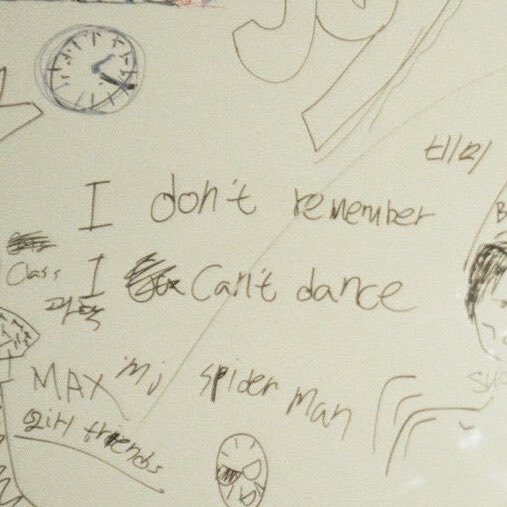 I don't remember
Class I Can't dance
과학
MAX I'm spider man
girl friends